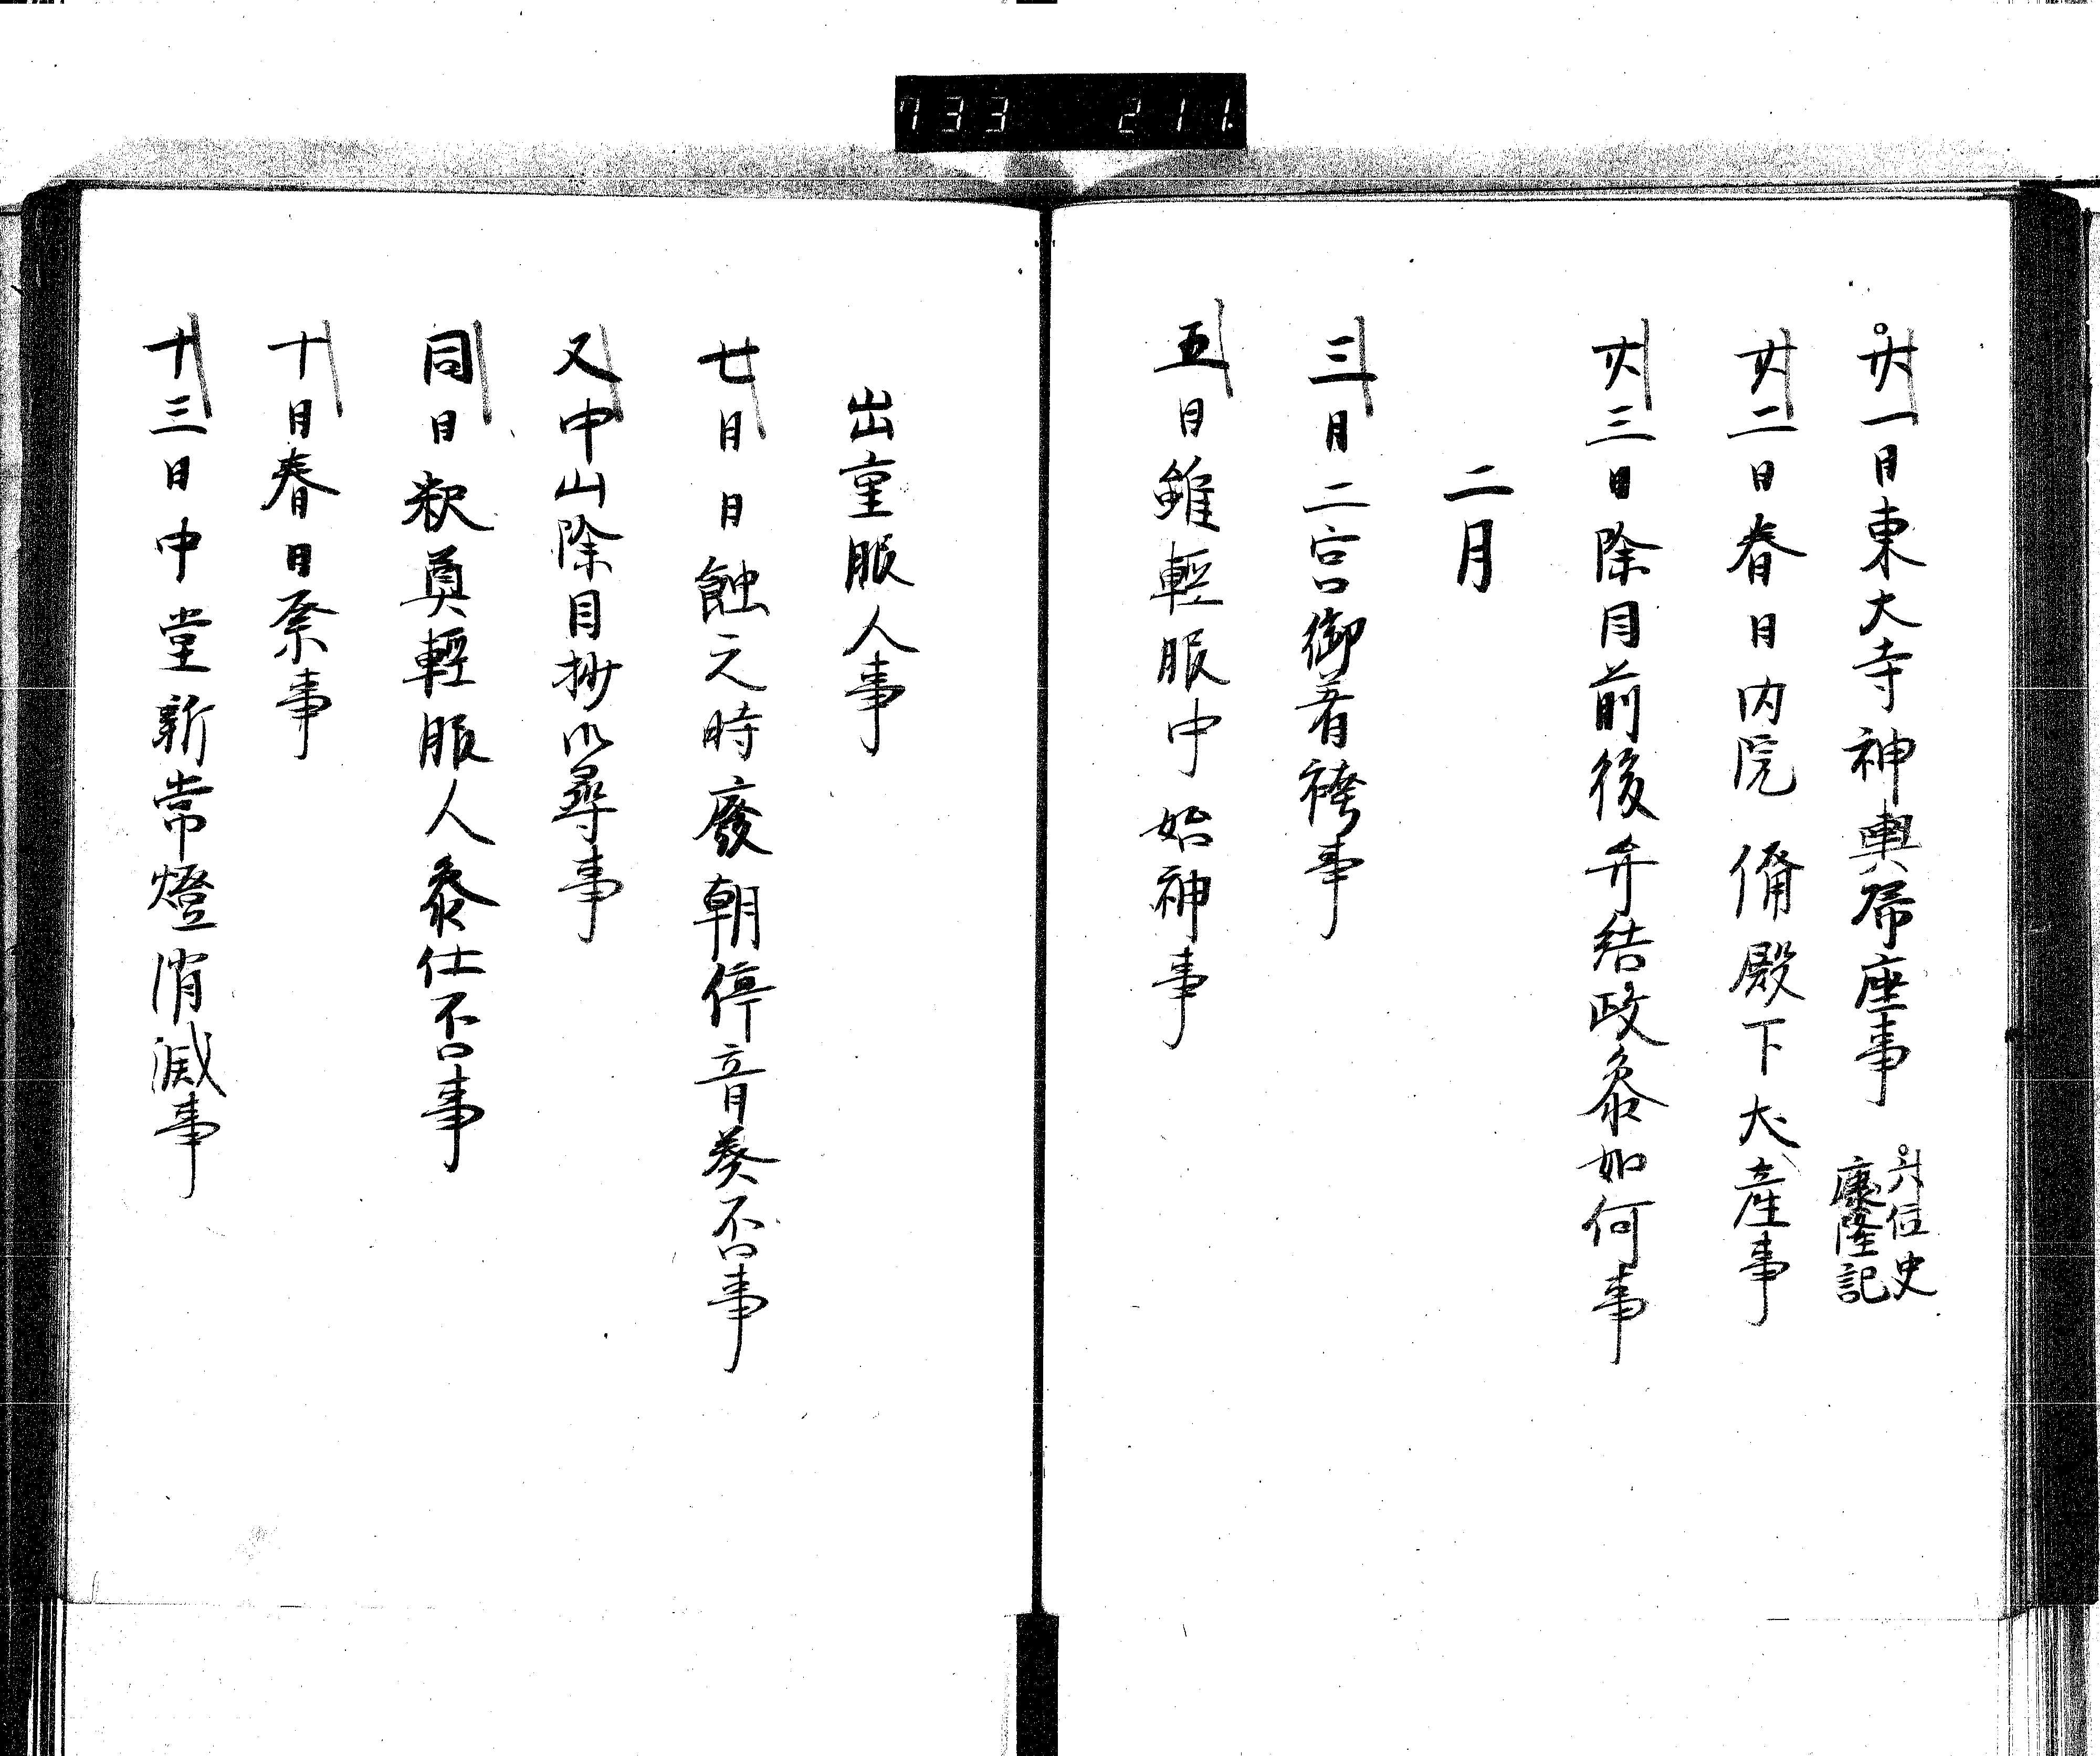 733 211
廿一日東大寺神輿帰座事 六位史
康隆記
廿二日春日内院備殿下犬産事
廿三日除目前後弁結政参如何事
二月
三日二宮御着袴事
五日雖軽服中始神事
出重服人事
七日日蝕之時廃朝停音奏否事
又中山除目抄以尋事
同日釈奠軽服人参仕不事
十日春日祭事
十三日中堂新常燈消滅事